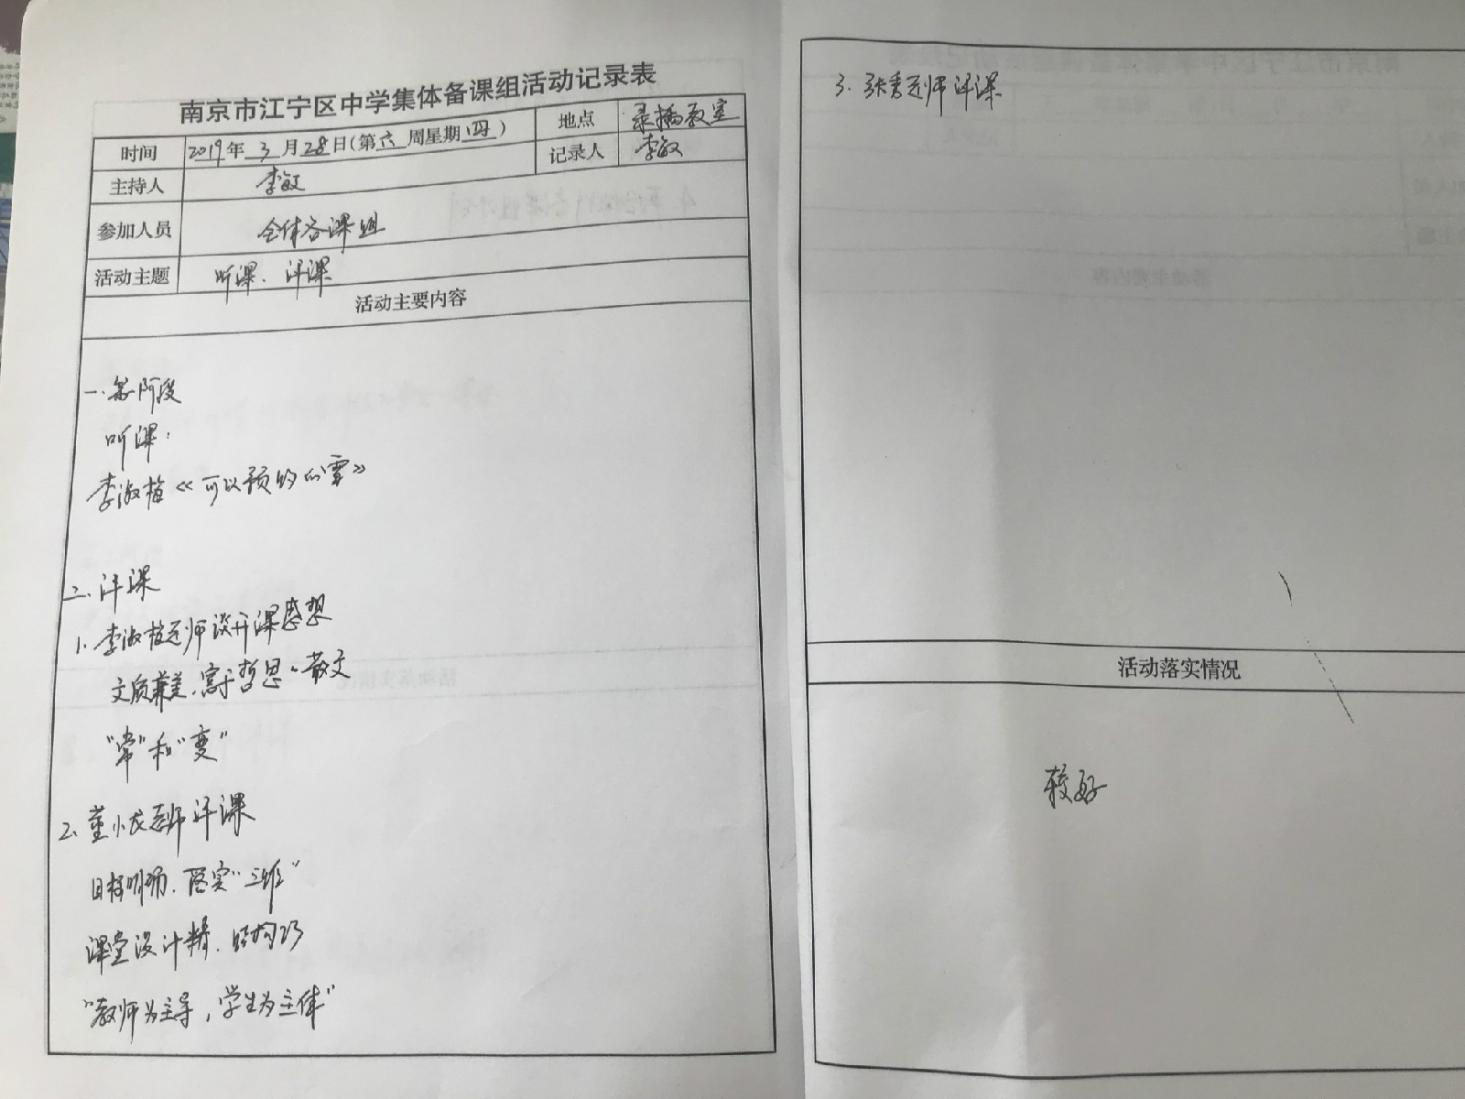 南京市江宁区中学集体备课组活动记录表
时间 2019年3月28日(第六周星期四) 地点 录播教室
主持人 李敏 记录人 李敏
参加人员 全体备课组
活动主题 听课、评课
活动主要内容
一、第一阶段
听课:
李淑植《可以预约的雪》
二、评课
1、李淑植老师谈开课感想
文质兼美、富于哲思、散文
"常"和"变"
2、董小龙老师评课
目标明确、落实"三维"
课堂设计精、结构巧
"教师为主导,学生为主体"
3、张秀老师评课
活动落实情况
较好